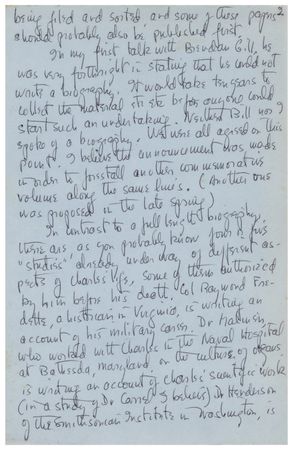 2
being filed and sorted and some of these papers
should probably also be published first.
In my first talk with Brendan Gill, he
was very forthright in stating that he could not
write a biography. It would take ten years to
collect the material etc etc before anyone could
start such an undertaking. Neither Bill nor I
spoke of a biography. We were all agreed on this
point. I believe the announcement was made
in order to forestall another commemorative
volume along the same lines. (Another one
was proposed in the late spring)
In contrast to a full length biography,
there are as you probably know four or five
"studies" already under way of different as-
pects of Charles' life, some of them authorized
by him before his death. Col Raymond
a historian in Virginia, is writing an
account of his military career. Dr
who worked with Charles in the Naval Hospital
at Bethesda, Maryland, on the culture of
is writing an account of Charles' scientific work
(in a study of Dr Carrel I believe) Dr Henderson
of the Smithsonian Institute in Washington, is